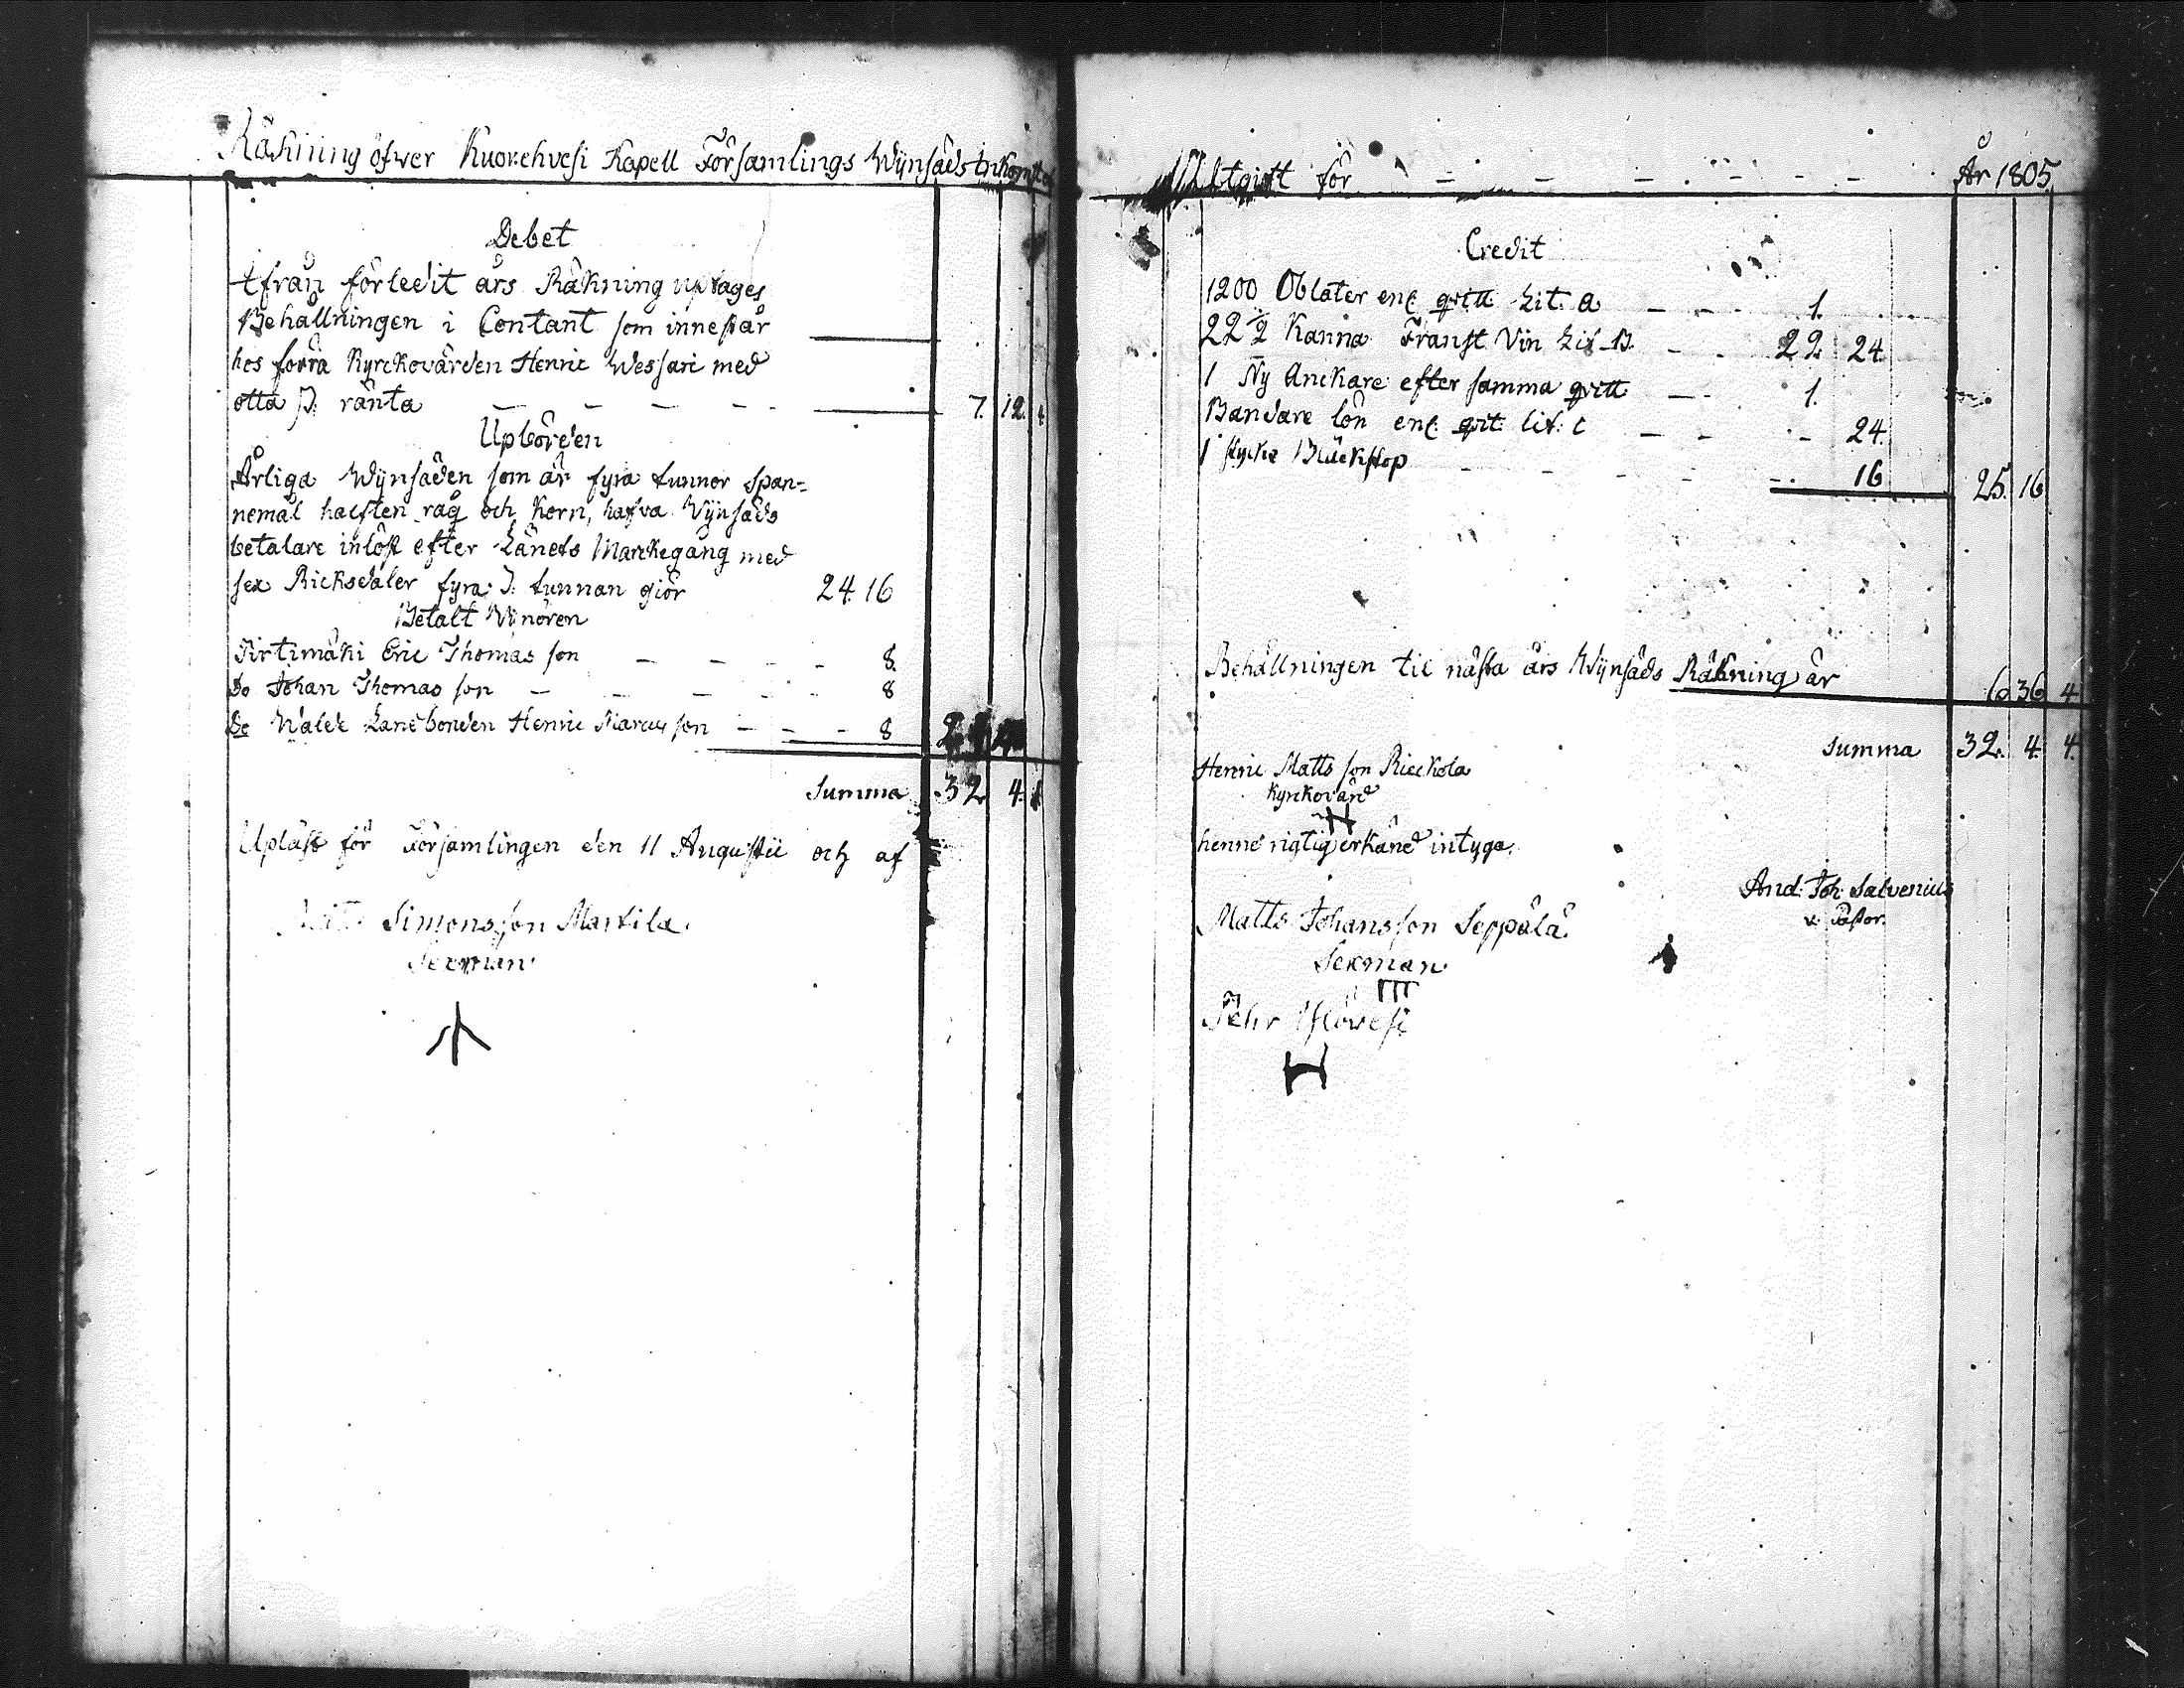 Räkning öfwer Kuorehvesi Kapell Församlings Wijnsäds Inkomst
Debet
ifrån förledit års Räkning uptages
Behållningen i Contant som innestår
hos förra Kyrckovärden Henric Wessari med
otta ß. ränta — — — — 7. 12. 4
Upbörden
Årliga Wijnsäden som är fyra tunnor Span-
nemål hälften råg och Korn, hafva Wijnsäds
betalare inlöst efter Länets Marckegång med
sex Ricksdaler fyra ß. tunnan giör 24. 16
Betalt Winören
Pirtimäki Eric Thomas son — — — — 8.
Do Johan Thomas son — — — — 8
Do Landbonden Henric Marcus son — — — 8
Summa 32. 4. 4
Upläst för Församlingen den 11 Augustii och af
Simonsson Martila.
Sexman.
Utgift för — — — — — — År 1805
Credit
1200 Oblater enl. qvitt Lit. A — — — 1.
22 ½ Kanna Franst Vin Lit. B. — — 22. 24
1 Ny Anckare efter samma qvitt — — 1.
Bandare lön enl. qvit: lit: C — — — 24.
1 stycke Bläckstop — — — — 16 25. 16
Behållningen til nästa års Wijnsäds Räkning är 6 36 4
Summa 32. 4. 4.
Henric Matts son Rieckola
Kyrkovärd
henne rigtig erkänd intyga.
And: Joh: Salvenius
v. Pastor.
Matts Johansson Seppälä.
Sexman.
Pehr